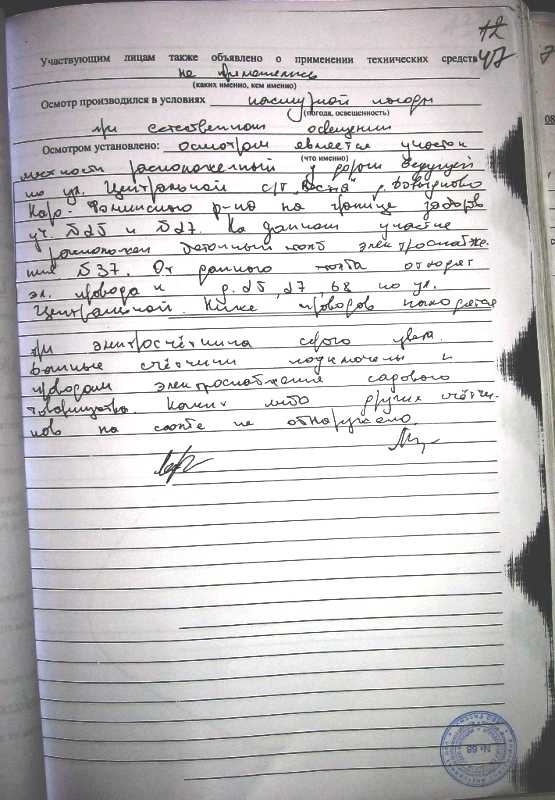 12
47
Участвующим лицам также объявлено о применении технических средств
не применялись
(каких именно, кем именно)
Осмотр производился в условиях пасмурной погоды
(погода, освещенность)
при естественном освещении
Осмотром установлено: осмотром является участок
(что именно)
местности расположенный у дороги ведущей
по ул. Центральной с/т „Весна" д.
Наро-Фоминского р-на на границе заборов
уч. №25 и №27. На данном участке
расположен бетонный столб электроснабже-
ния №37. От данного столба отходят
эл. провода к д. 25, 27 68 по ул.
Центральной. Ниже проводов находятся
три электросчётчика серого цвета.
Данные счётчики подключены к
проводам электроснабжение садового
товарищества. Каких либо других счётчи-
ков на столбе не обнаружено.
08
№ 68